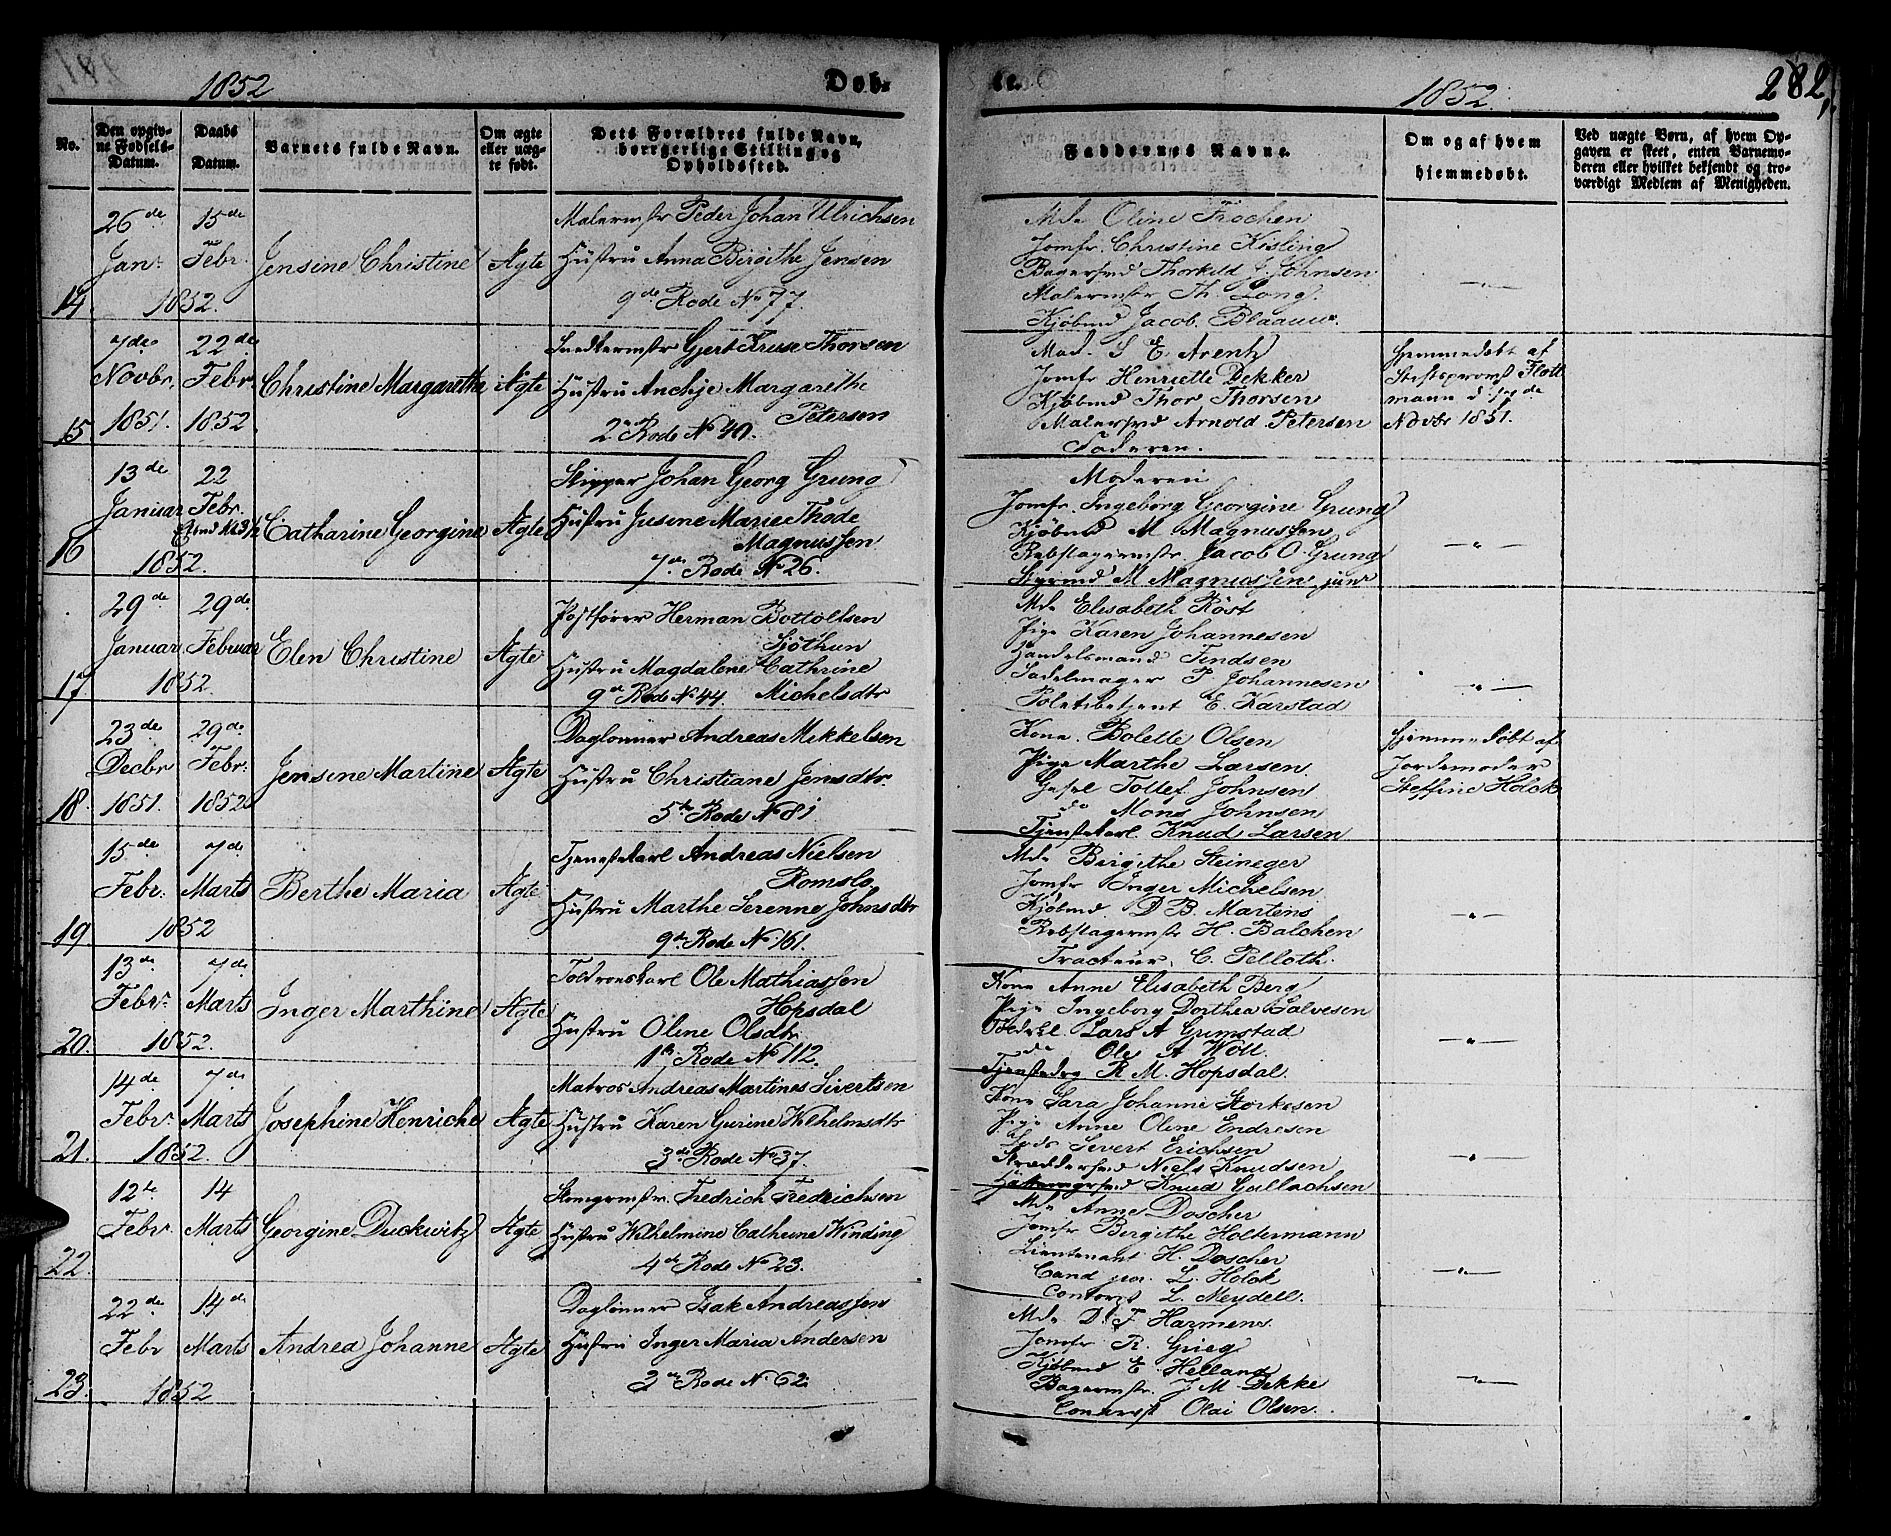 1852 Døb- te. 1852 282,
No.
Den opgiv-
ne Fødsels-
Datum.
Daabs
Datum.
Barnets fulde Navn.
Om ægte
eller uæg-
te født.
Dets Forældres fulde Navn,
borgerlige Stilling og
Opholdssted.
Faddernes Navne.
Om og af hvem
hjemmedøbt.
Ved uægte Børn, af hvem Op-
gaven er skeet, enten Barnemo-
deren eller hvilket bekjendt og tro-
værdigt Medlem af Menigheden.
14.
26de
Janr
15de
Febr.
1852.
Jensine Christine
Ægte
Malermstr Peder Johan Ulrichsen
Hustru Anna Birgithe Jensen
9de Rode No 77.
Mde Oline Trochen
Jomfr. Christine Kisling
Bagersvd Thorkild J. Johnsen
Malermstr Th. Long.
Kjøbmd Jacob Blaauw.
— " —
15
7de
Novbr.
1851.
22de
Febr.
1852
Christine Margarethe
Ægte
Snedkermstr Gjert Kruse Thorsen
Hustru Anchje Margarethe
Petersen
2den Rode No 40.
Mad. S E. Arentz
Jomfr Henriette Dekker
Kjøbmd Thor Thorsen
Malersvd Arnold Petersen
Faderen.
Hjemmedøbt af
Stiftsprovst Flott
mann d. de
Novbr 1851.
16
13de
Januar
22
Febr.
1852.
Catharine Georgine
Ægte
Skipper Johan Georg Grung
Hustru Jusine Marie Thode
Magnussen
7de Rode No 26.
Moderen
Jomfr. Ingeborg Georgine Grung
Kjøbmd M Magnussen
Rebslagermstr Jacob O. Grung
Styrmd M Magnussen junr
— " —
17
29de
Januar
29de
Februar
1852.
Elen Christine
Ægte
Postfører Herman Bottolfsen
Sjøthun
Hustru Magdalene Cathrine
9de Rode No 44 Michelsdtr
Mde Elisabeth Röst
Pige Karen Johannesen
Handelsmand Findsen
Sadelmager J Johannesen
Politibetjent E. Karstad
— " —
18.
23de
Decbr
1851.
29de
Febr.
1852
Jensine Martine
Ægte
Daglønner Andreas Mikkelsen
Hustru Christiane Jensdtr.
5te Rode No 81
Kone Bolette Olsen
Pige Marthe Larsen
Gesel Tollef Johnsen
do Mons Johnsen
Tjenstekarl Knud Larsen
Hjemmedøbt af
Jordemoder
Steffine Holck
19
15de
Febr.
7de
Marts
1852
Berthe Maria
Ægte
Tjenestekarl Andreas Nielsen
Romslo
Hustru Marthe Serenne Johnsdtr
9de Rode No 161.
Mde Birgithe Steineger
Jomfr Inger Michelsen
Kjøbmd. D B. Martens
Rebslagermstr H. Balchen
Tracteur C. Pelloth.
— " —
20.
13de
Febr.
7de
Marts
1852.
Inger Marthine
Ægte
Toldroerskarl Ole Mathiassen
Hopsdal
Hustru Oline Olsdtr
1ste Rode No 112.
Kone Anne Elisabeth Berg
Pige Ingeborg Dorthea Salvesen
Lars A Grimstad
do Ole A Woll.
R M. Hopsdal.
— " —
21.
14de
Febr.
7de
Marts
1852.
Josephine Henricke
Ægte
Matros Andreas Martines Sivertsen
Hustru Karen Gurine Wilhelmsdtr
3de Rode No 37.
Kone Sara Johanne Störkesen
Pige Anne Oline Endresen
Lods Sivert Erichsen
Skreddersvd Niels Knudsen
Knud Gullachsen
— " —
22.
12te
Febr.
14
Marts
Georgine Duckwitz
Ægte
Fredrich Fredrichsen
Hustru Wilhelmine Cathrine Winding
4de Rode No 23.
Mde Anne Döscher
Jomfr Birgithe Holtermann
Lieutenant H. Döscher
Cand L. Holck
Contorist L. Meydell.
— " —
23.
22de
Febr
14de
Marts
1852
Andrea Johanne
Ægte
Daglønner Isak Andreassen
Hustru Inger Maria Andersen
3de Rode No 62.
Mde D. F Harmens
Jomfr R. Grieg
Kjøbmd E. Helland
Bagermstr. J M. Dekke
Contorist Olai Olsen.
— " —